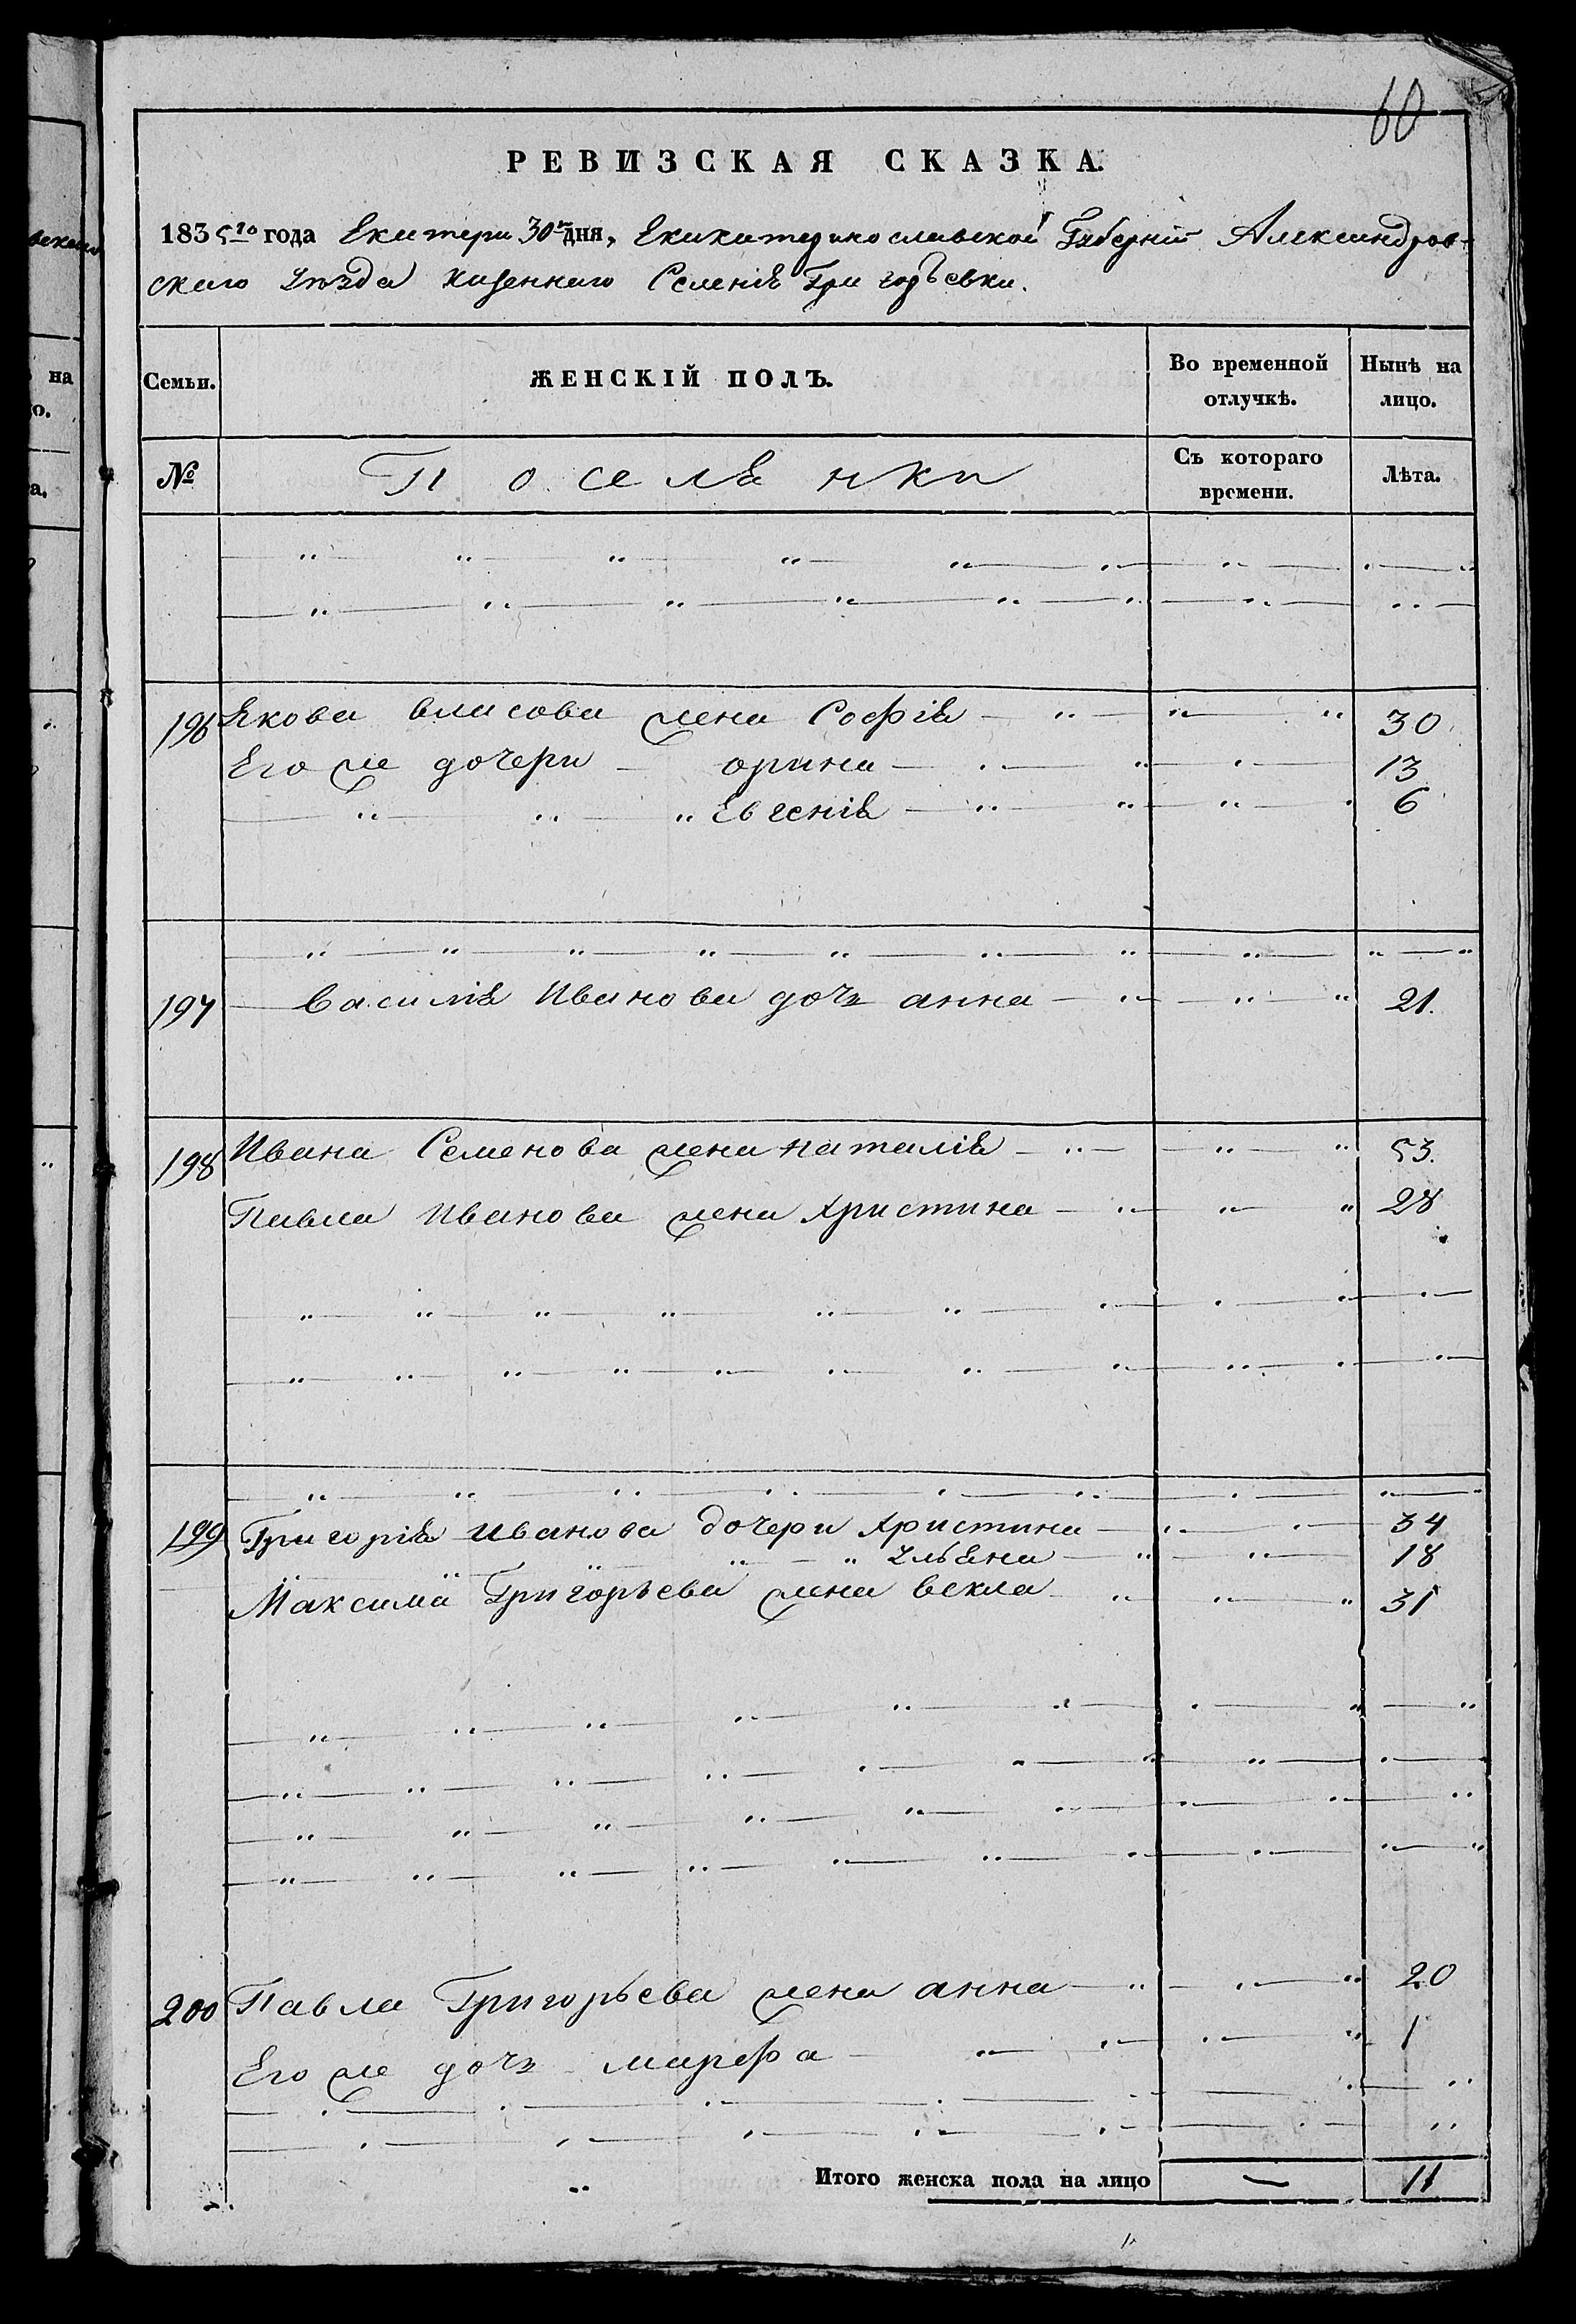 60
РЕВИЗСКАЯ СКАЗКА.
1835го года 30 дня, Екикатеринославской Губерніи Александров-
скаго Уѣзда казеннаго Селенія Григорьевки.
Семьи.
ЖЕНСКІЙ ПОЛЪ.
Во временной отлучкѣ.
Нынѣ на лицо.
№
Поселянки
Съ котораго времени.
Лѣта.
196 Якова власова жена Софія 30
Его же дочери орина 13
Евгенія 6
197 Василія Иванова дочь анна 21.
198 Ивана Семенова жена наталія 53.
Павла Иванова жена христина 28
199 Григорія иванова дочери христина 34
ульяна 18
Максима Григорьева жена векла 31
200 Павла Григорьева жена анна 20
Его же дочь марфа 1
Итого женска пола на лицо — 11
на
о.
а.